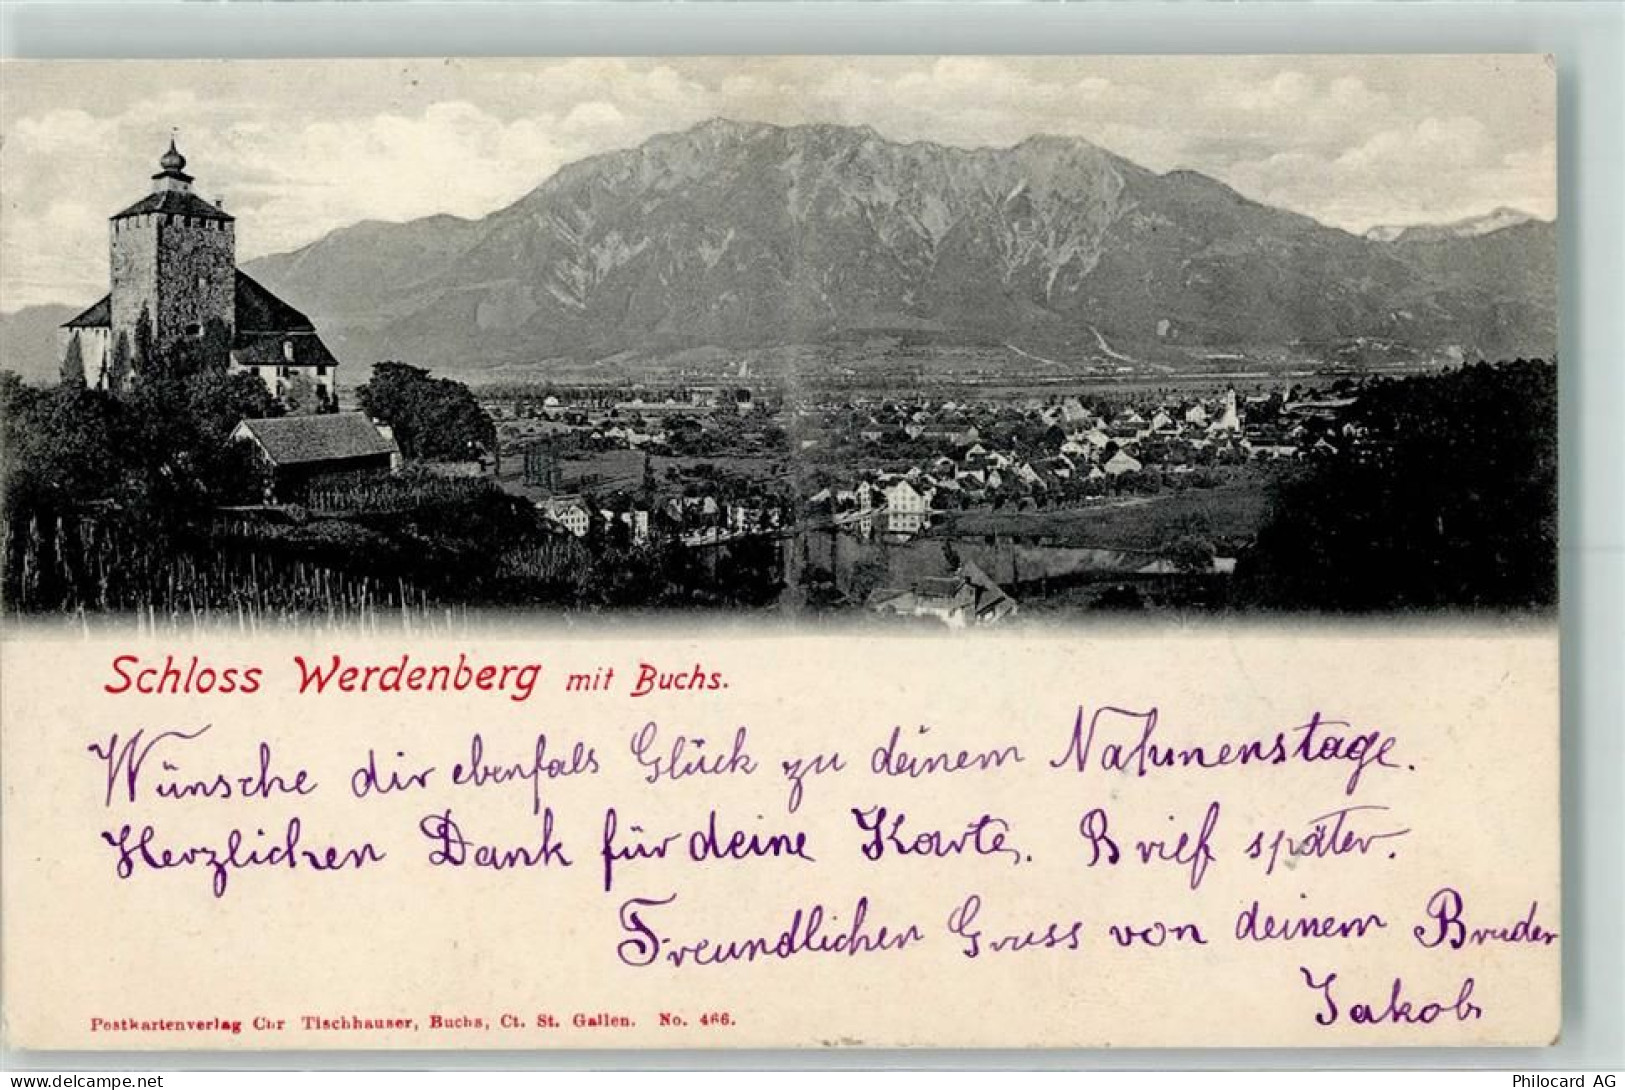 Schloss Werdenberg mit Buchs.
Wünsche dir ebenfals Glück zu deinem Nahmenstage.
Herzlichen Dank für deine Karte. Brief später.
Freundlichen Gruss von deinem Bruder
Jakob
Postkartenverlag Chr Tischhauser, Buchs, Ct. St. Gallen. No. 466.
www.delcampe.net
Philocard AG